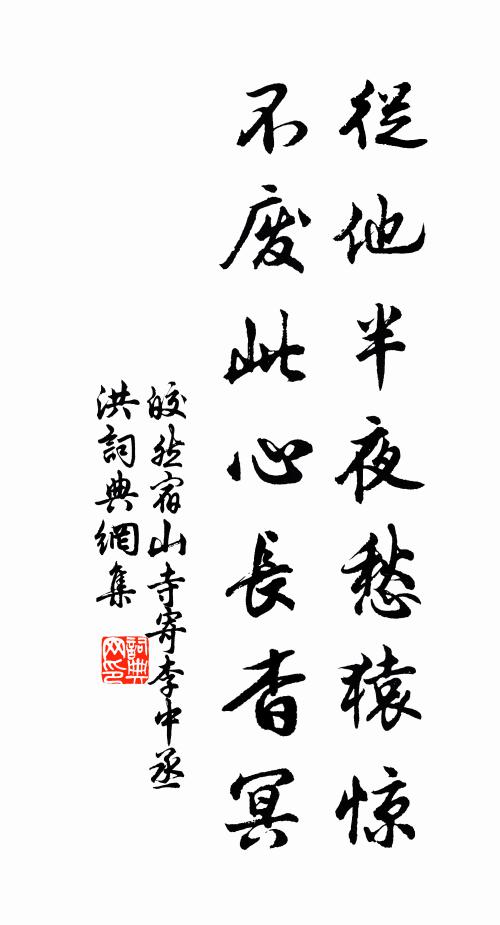 從他半夜愁猿惊
不废此心長杳冥
皎然宿山寺寄李中丞
洪詞典網集
詞典網印